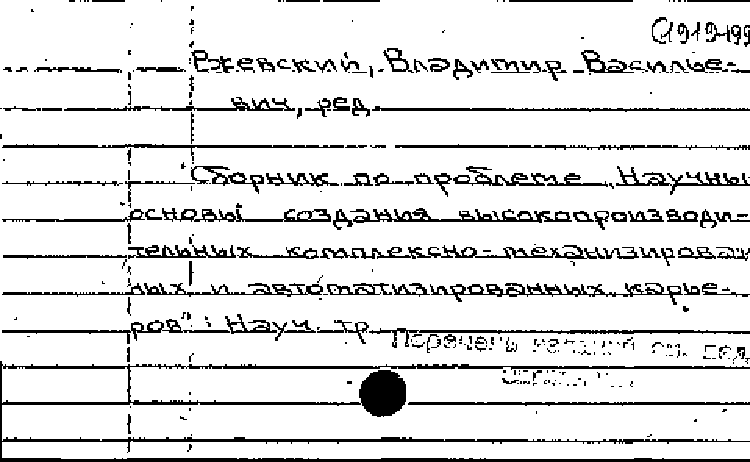 (1919-199
Ржевский, Владимир Василье-
вич, ред.
Сборник по проблеме "Научны
основы создания высокопроизводи-
тельных комплексно-механизирован
ных и автоматизированных карье-
ров" : Науч. тр.
Перечень изданий см. след.